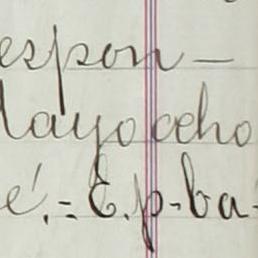 espon-
Mayo ocho
é.= E.p-ba-